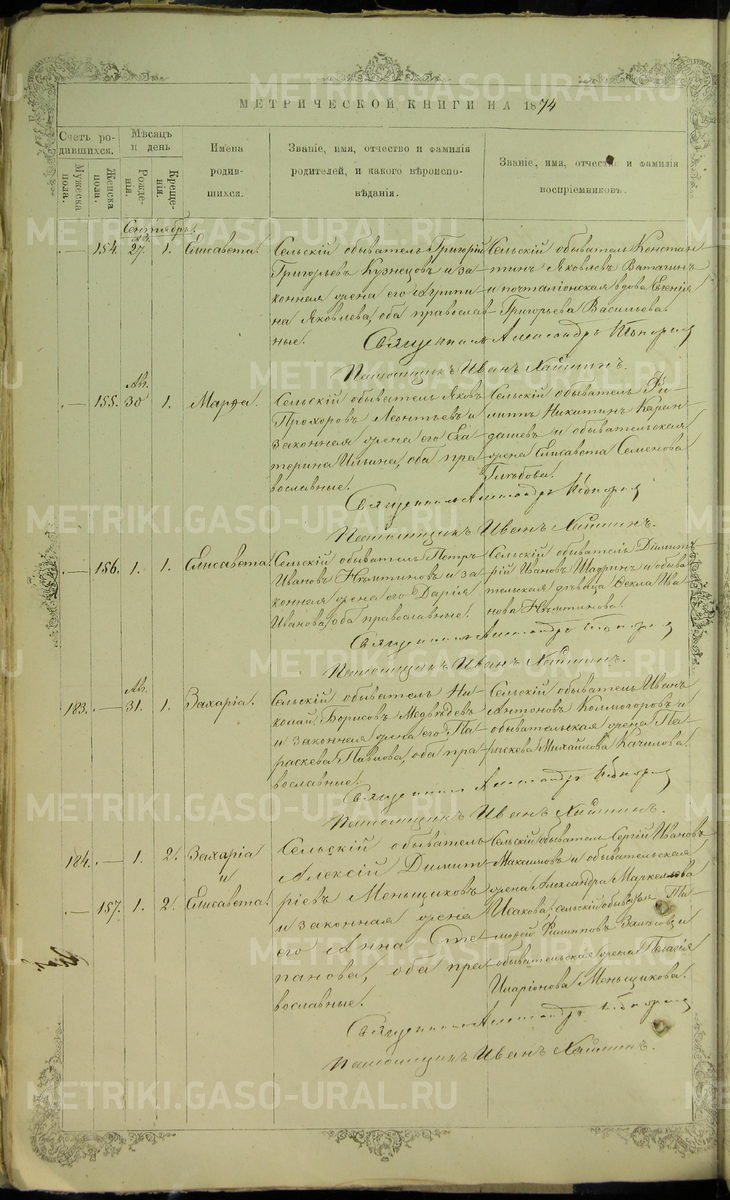 МЕТРИЧЕСКОЙ КНИГИ НА 1874
Счетъ ро-
дившихся.
Мужеска
пола.
Женска
пола.
Мѣсяцъ
и день
Рожде-
нія.
Креще-
нія.
Имена
родив-
шихся.
Званіе, имя, отчество и фамилія
родителей, и какого вѣроиспо-
вѣданія.
Званіе, имя, отчество и фамилія
воспріемниковъ.
Сентябрь.
154. Ав. 27. 1. Елисавета.
Сельскій обыватель Григорій
Григорьевъ Кузнецовъ и за-
конная жена его
на Яковлева, оба православ-
ные.
Сельскій обыватель Констан-
тинъ Яковлевъ Ватагинъ
и почталіонская вдова Евгенія
Григорьева Васильева.
Священникъ Александръ
Помощникъ Иванъ
155. Ав. 30 1. Марфа.
Сельскій обыватель Яковъ
Прохоровъ Леонтьевъ и
законная жена его Ека-
терина Ильина, оба пра-
вославные.
Сельскій обыватель Фи-
липпъ Никитинъ Каран-
дашевъ и обывательская
жена Елисавета Семенова
Глѣбова.
Священникъ Александръ
Помощникъ Иванъ
156. 1. 1. Елисавета.
Сельскій обыватель Петръ
Ивановъ и за-
конная жена его Дарія
Иванова, оба православные.
Сельскій обыватель Димит-
рій Ивановъ Шадринъ и обыва-
тельская дѣвица Ѳекла Ива-
нова
Священникъ Александръ
Помощникъ Иванъ
183. Ав. 31. 1. Захарія.
Сельскій обыватель Ни-
колай Борисовъ Медвѣдевъ
и законная жена его Па-
раскева Павлова, оба пра-
вославные.
Сельскій обыватель Иванъ
Антоновъ Колмогоровъ и
обывательская жена Па-
раскева Михайлова Качилова.
Священникъ Александръ
Помощникъ Иванъ
184. 1. 2. Захарія
и
157. 1. 2. Елисавета.
Сельскій обыватель
Алексій Димит-
ріевъ Меньщиковъ
и законная жена
его Анна Сте-
панова, оба пра-
вославные.
Сельскій обыватель Сергій Ивановъ
Максимовъ и обывательская
жена Александра Маркелова
Исакова, сельскій обыватель Ти-
мофей Филипповъ и
обывательская жена Пелагія
Иларіонова Меньщикова.
Священникъ Александръ
Помощникъ Иванъ
METRIKI.GASO-URAL.RU